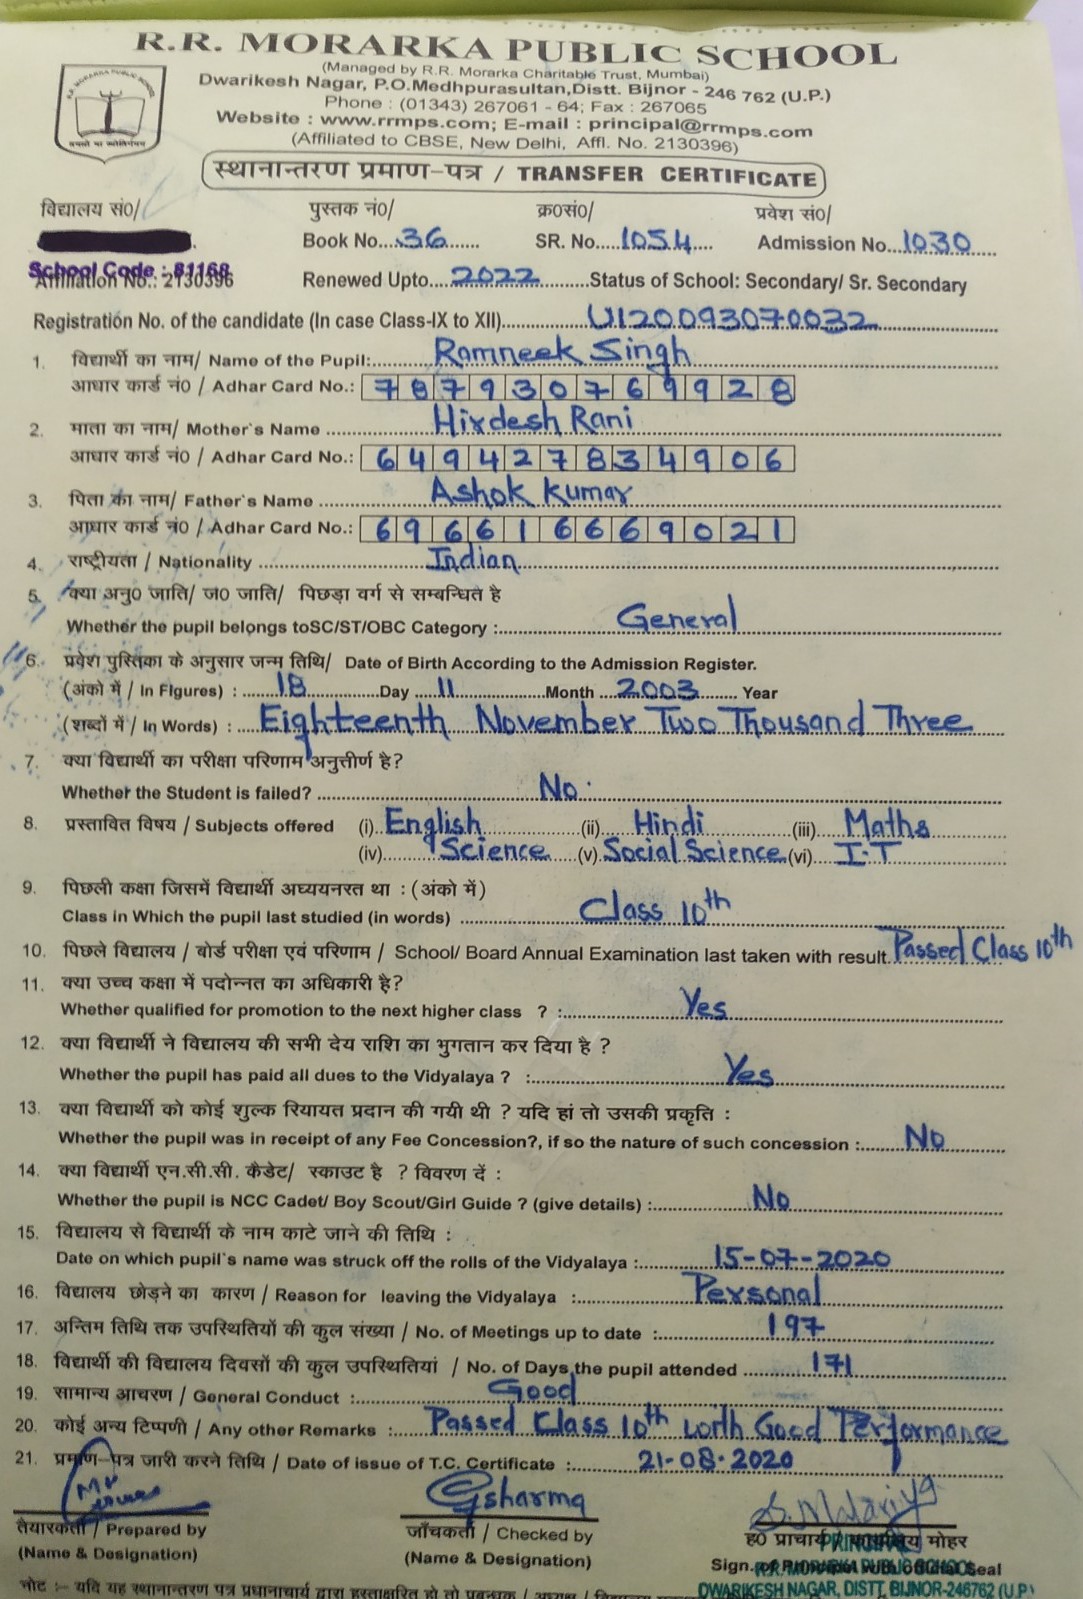 R.R. MORARKA PUBLIC SCHOOL
(Managed by R.R. Morarka Charitable Trust, Mumbai)
Dwarikesh Nagar, P.O.Medhpurasultan,Distt. Bijnor - 246 762 (U.P.)
Phone : (01343) 267061 - 64; Fax : 267065
Website : www.rrmps.com; E-mail : principal@rrmps.com
(Affiliated to CBSE, New Delhi, Affl. No. 2130396)
R.R. MORARKA PUBLIC SCHOOL
तमसो मा ज्योतिर्गमय
स्थानान्तरण प्रमाण-पत्र / TRANSFER CERTIFICATE
विद्यालय सं0/ पुस्तक नं0/ क्र0सं0/ प्रवेश सं0/
Book No. 36 SR. No. 1054 Admission No. 1030
School Code : 81168
Affiliation No.: 2130396 Renewed Upto 2022 Status of School: Secondary/ Sr. Secondary
Registration No. of the candidate (In case Class-IX to XII) U120093070032
1. विद्यार्थी का नाम/ Name of the Pupil: Ramneek Singh
आधार कार्ड नं0 / Adhar Card No.: 7 8 7 9 3 0 7 6 9 9 2 8
2. माता का नाम/ Mother's Name Hirdesh Rani
आधार कार्ड नं0 / Adhar Card No.: 6 4 9 4 2 7 8 3 4 9 0 6
3. पिता का नाम/ Father's Name Ashok Kumar
आधार कार्ड नं0 / Adhar Card No.: 6 9 6 6 1 6 6 6 9 0 2 1
4. राष्ट्रीयता / Nationality Indian
5. क्या अनु0 जाति/ ज0 जाति/ पिछड़ा वर्ग से सम्बन्धित है
Whether the pupil belongs toSC/ST/OBC Category : General
6. प्रवेश पुस्तिका के अनुसार जन्म तिथि/ Date of Birth According to the Admission Register.
(अंको में / In FIgures) : 18 Day 11 Month 2003 Year
(शब्दों में / In Words) : Eighteenth November Two Thousand Three
7. क्या विद्यार्थी का परीक्षा परिणाम अनुत्तीर्ण है?
Whether the Student is failed? No
8. प्रस्तावित विषय / Subjects offered (i) English (ii) Hindi (iii) Maths
(iv) Science (v) Social Science (vi) I.T
9. पिछली कक्षा जिसमें विद्यार्थी अध्ययनरत था : (अंको में)
Class in Which the pupil last studied (in words) Class 10th
10. पिछले विद्यालय / बोर्ड परीक्षा एवं परिणाम / School/ Board Annual Examination last taken with result. Passed Class 10th
11. क्या उच्च कक्षा में पदोन्नत का अधिकारी है?
Whether qualified for promotion to the next higher class ? : Yes
12. क्या विद्यार्थी ने विद्यालय की सभी देय राशि का भुगतान कर दिया है ?
Whether the pupil has paid all dues to the Vidyalaya ? : Yes
13. क्या विद्यार्थी को कोई शुल्क रियायत प्रदान की गयी थी ? यदि हां तो उसकी प्रकृति :
Whether the pupil was in receipt of any Fee Concession?, if so the nature of such concession : No
14. क्या विद्यार्थी एन.सी.सी. कैडेट/ स्काउट है ? विवरण दें :
Whether the pupil is NCC Cadet/ Boy Scout/Girl Guide ? (give details) : No
15. विद्यालय से विद्यार्थी के नाम काटे जाने की तिथि :
Date on which pupil's name was struck off the rolls of the Vidyalaya : 15-07-2020
16. विद्यालय छोड़ने का कारण / Reason for leaving the Vidyalaya : Personal
17. अन्तिम तिथि तक उपस्थितियों की कुल संख्या / No. of Meetings up to date : 197
18. विद्यार्थी की विद्यालय दिवसों की कुल उपस्थितियां / No. of Days the pupil attended 171
19. सामान्य आचरण / General Conduct : Good
20. कोई अन्य टिप्पणी / Any other Remarks : Passed Class 10th with Good Performance
21. प्रमाण-पत्र जारी करने तिथि / Date of issue of T.C. Certificate : 21-08-2020
Gsharma
तैयारकर्ता / Prepared by जाँचकर्ता / Checked by ह0 प्राचार्य/ कार्यालय मोहर
(Name & Designation) (Name & Designation) Sign. of Principal with official Seal
PRINCIPAL
R.R. MORARKA PUBLIC SCHOOL
DWARIKESH NAGAR, DISTT. BIJNOR-246762 (U.P.)
नोट :- यदि यह स्थानान्तरण पत्र प्रधानाचार्य द्वारा हस्ताक्षरित हो तो